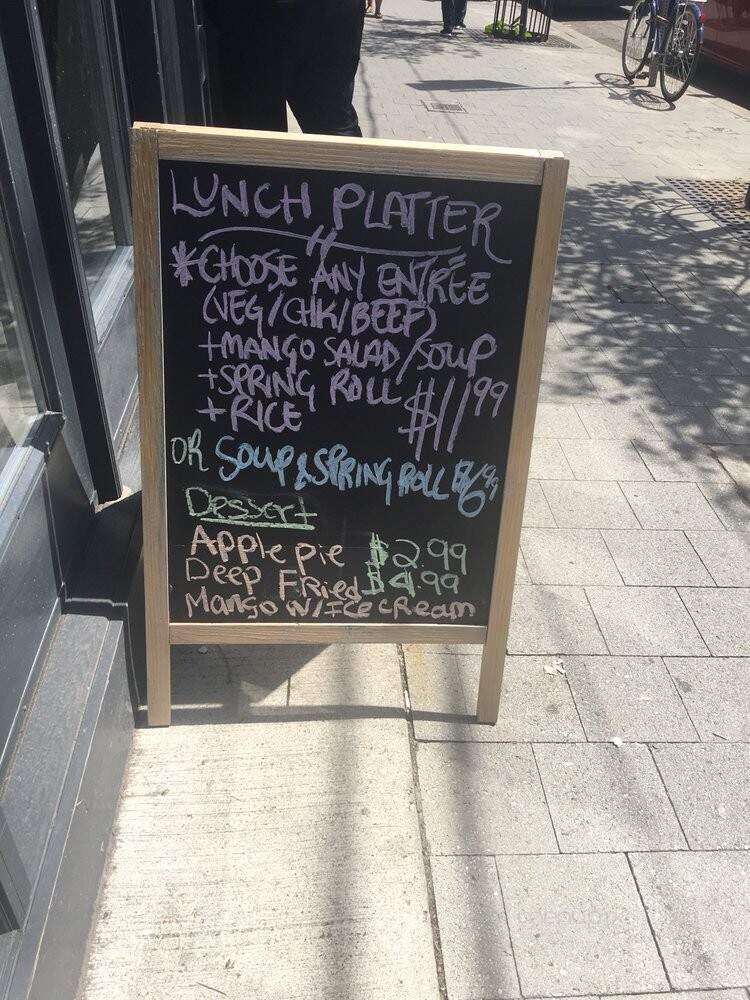 LUNCH PLATTER
*CHOOSE ANY ENTRÉE
(VEG/CHK/BEEF)
+MANGO SALAD/SOUP
+SPRING ROLL $11.99
+RICE
OR SOUP & SPRING ROLL $6.99
Dessert
Apple pie $2.99
Deep Fried $4.99
Mango w/Ice cream